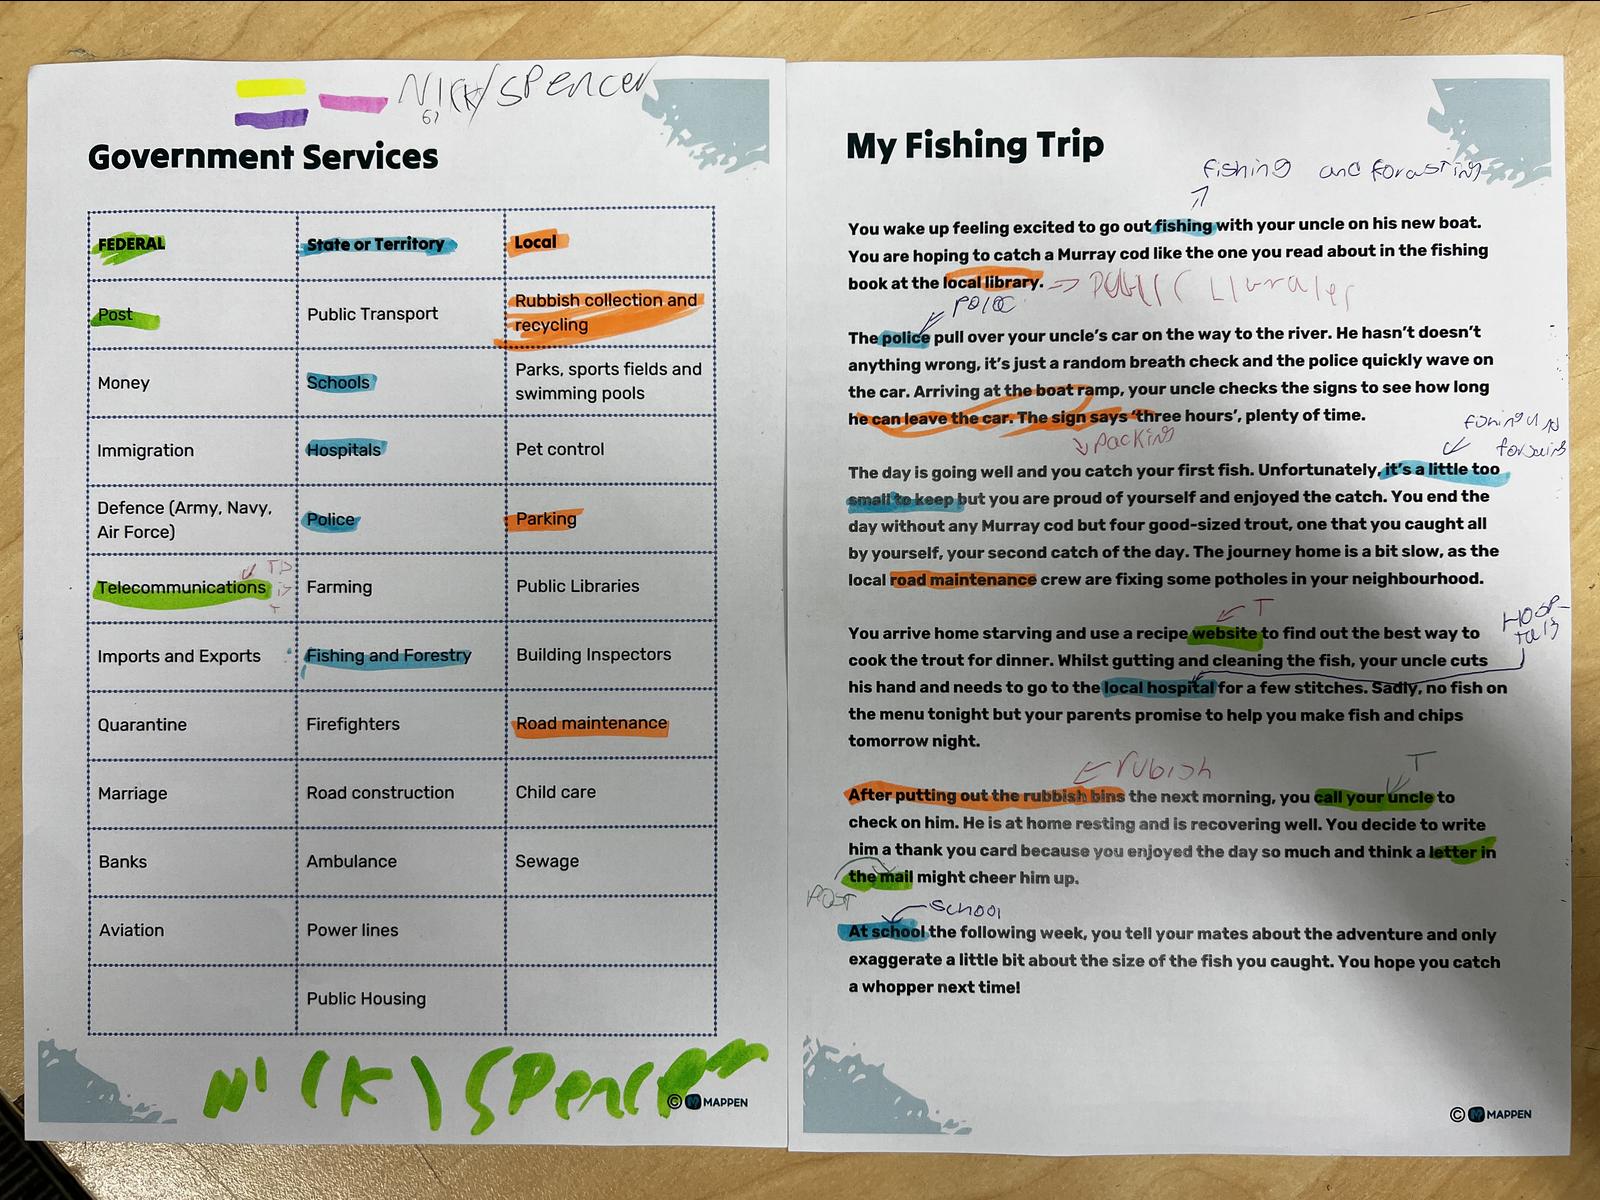 NICK/SPencer
Government Services
FEDERAL State or Territory Local
Post Public Transport Rubbish collection and
recycling
Money Schools Parks, sports fields and
swimming pools
Immigration Hospitals Pet control
Defence (Army, Navy,
Air Force) Police Parking
Telecommunications Farming Public Libraries
Imports and Exports Fishing and Forestry Building Inspectors
Quarantine Firefighters Road maintenance
Marriage Road construction Child care
Banks Ambulance Sewage
Aviation Power lines
Public Housing
NI(K) SPencer
© M MAPPEN
My Fishing Trip
fishing and forasting
You wake up feeling excited to go out fishing with your uncle on his new boat.
You are hoping to catch a Murray cod like the one you read about in the fishing
book at the local library.
The police pull over your uncle's car on the way to the river. He hasn't doesn't
anything wrong, it's just a random breath check and the police quickly wave on
the car. Arriving at the boat ramp, your uncle checks the signs to see how long
he can leave the car. The sign says 'three hours', plenty of time.
packing
The day is going well and you catch your first fish. Unfortunately, it's a little too
small to keep but you are proud of yourself and enjoyed the catch. You end the
day without any Murray cod but four good-sized trout, one that you caught all
by yourself, your second catch of the day. The journey home is a bit slow, as the
local road maintenance crew are fixing some potholes in your neighbourhood.
T
You arrive home starving and use a recipe website to find out the best way to
cook the trout for dinner. Whilst gutting and cleaning the fish, your uncle cuts
his hand and needs to go to the local hospital for a few stitches. Sadly, no fish on
the menu tonight but your parents promise to help you make fish and chips
tomorrow night.
rubish
T
After putting out the rubbish bins the next morning, you call your uncle to
check on him. He is at home resting and is recovering well. You decide to write
him a thank you card because you enjoyed the day so much and think a letter in
the mail might cheer him up.
POST
school
At school the following week, you tell your mates about the adventure and only
exaggerate a little bit about the size of the fish you caught. You hope you catch
a whopper next time!
© M MAPPEN